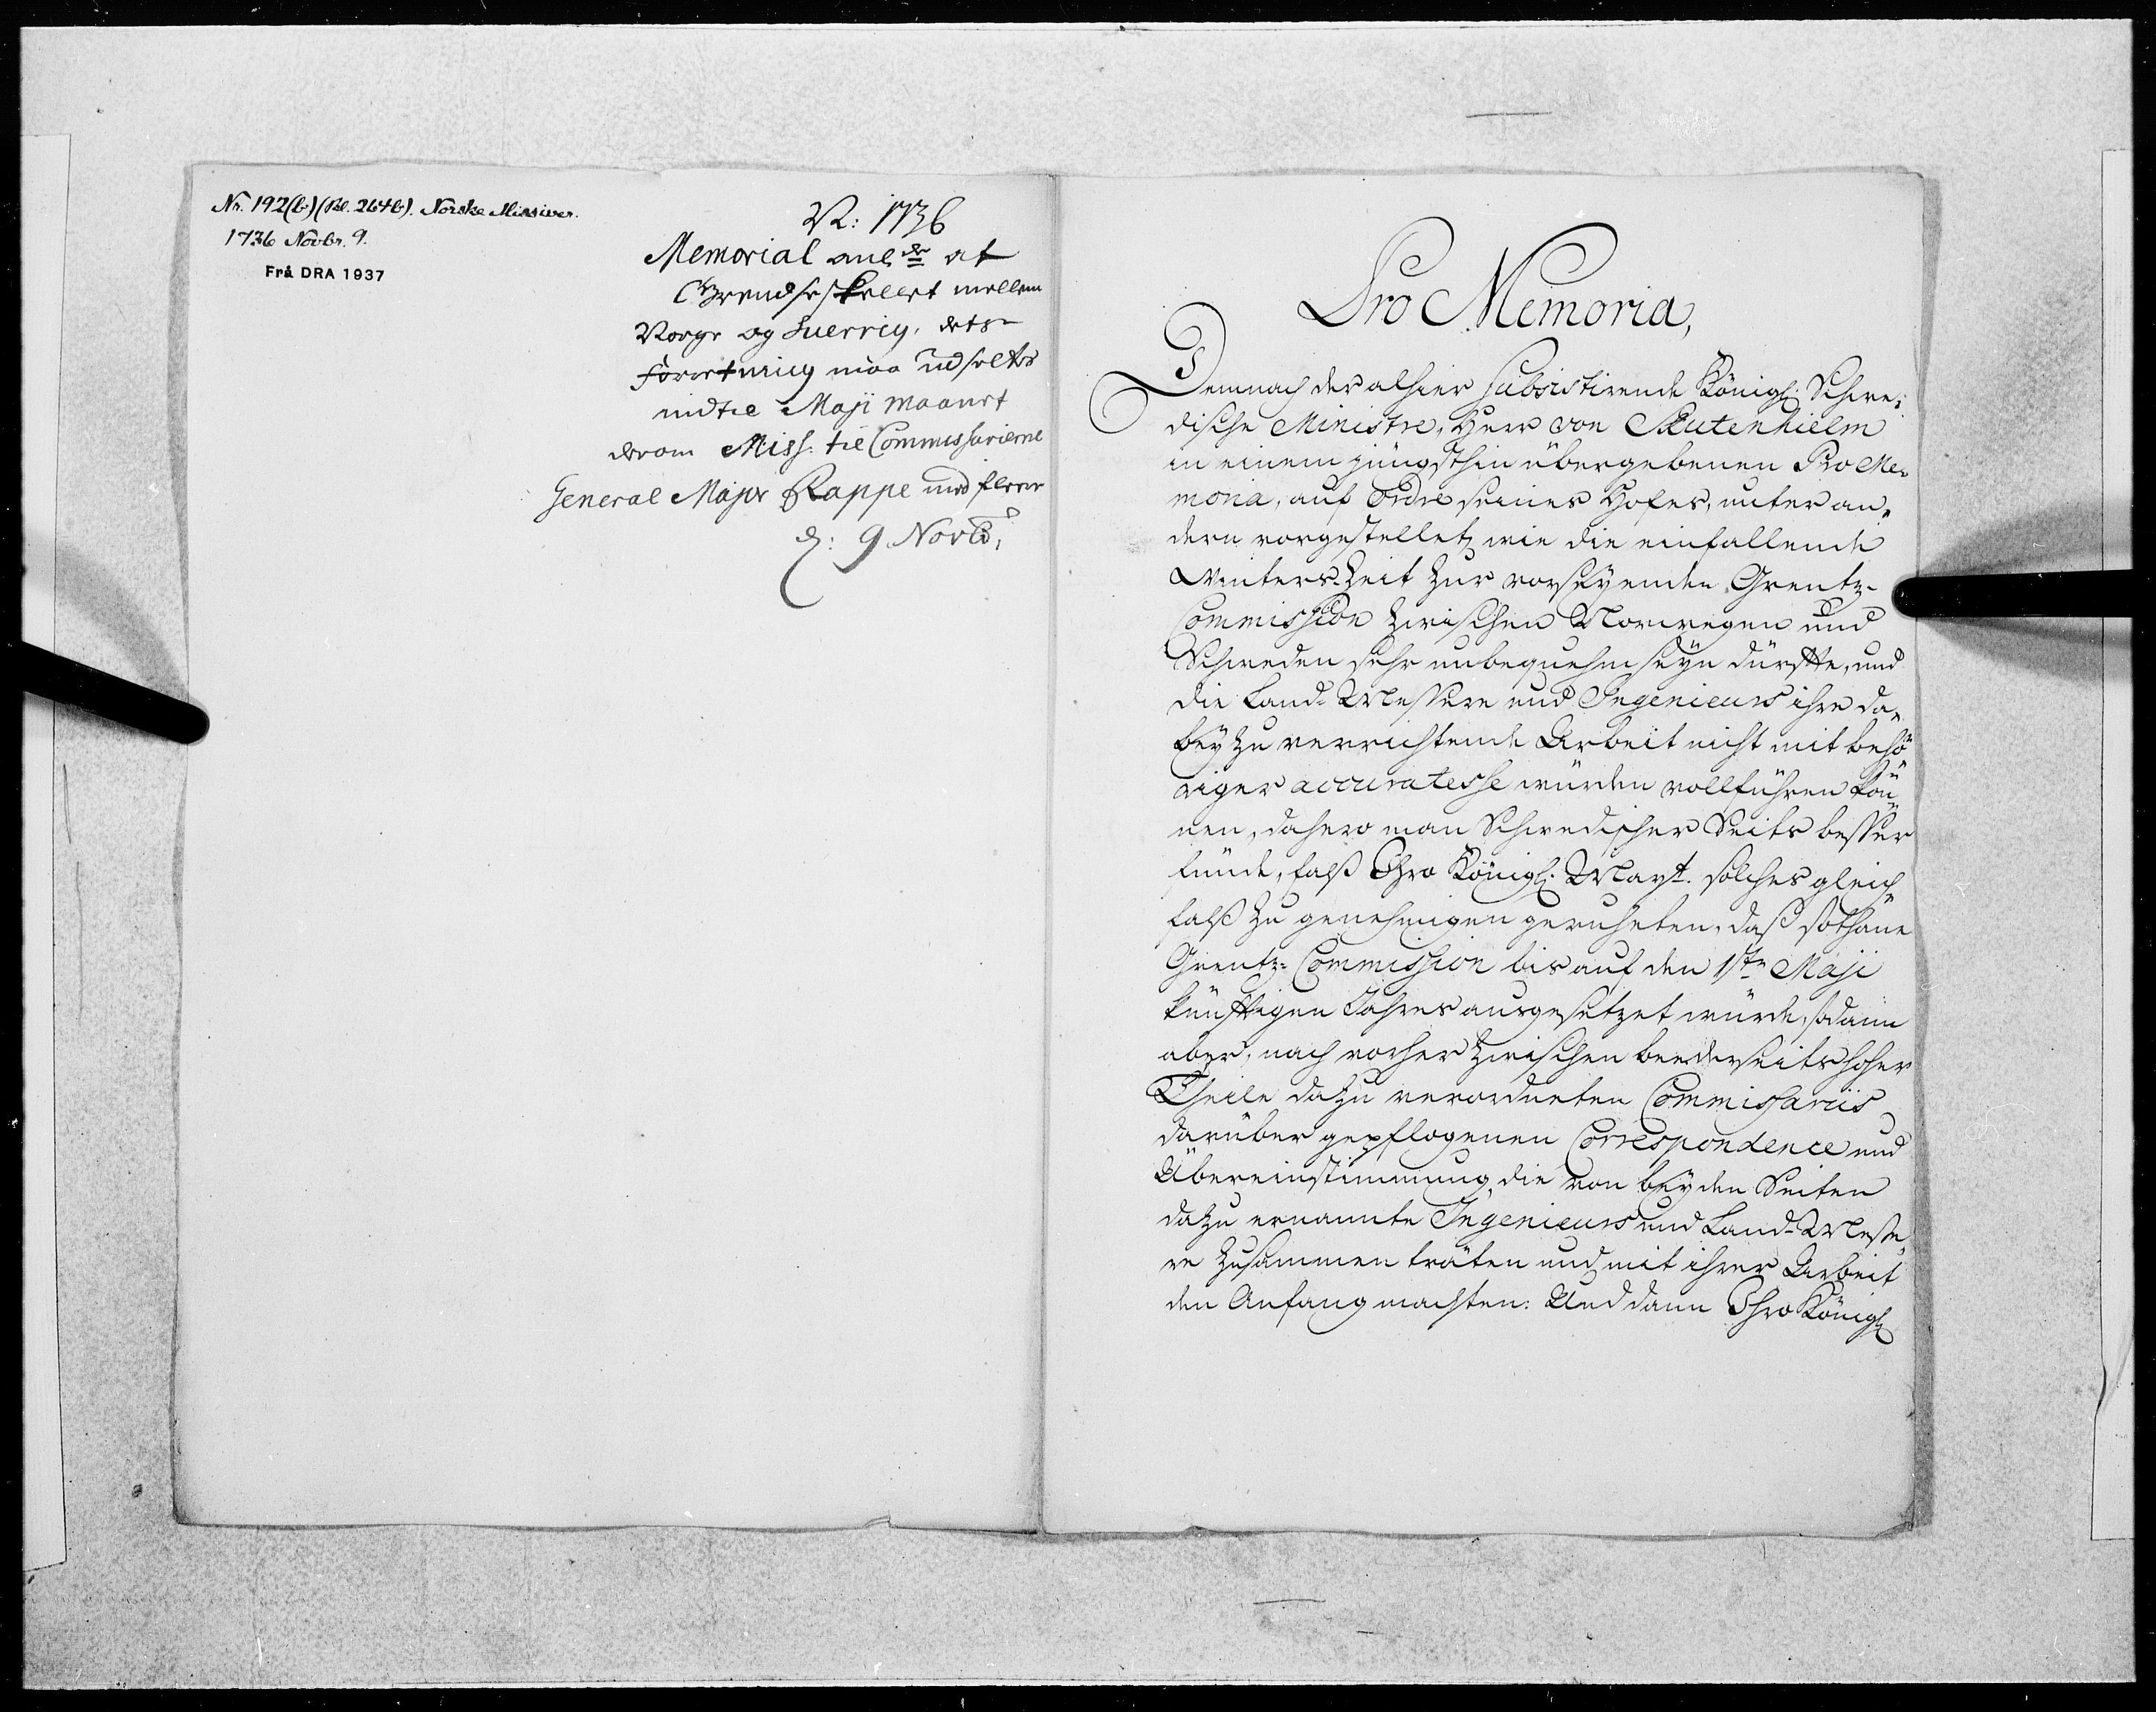 Nr. 192(b) (Bl. 264b). Norske Missiver.
1736 Novbr. 9.
Frå DRA 1937
N: 1736
Memorial anl: at
Grendseskellet mellem
Norge og Suerrig, dets
Foretning maa udsettes
indtil Maji Maanet
derom Miss: til Commissarierne
General Major Rappe med flere
d: 9 Novb:
Pro Memoria,
Demnach der alhier subsistirende Königl. Schwe-
dische Ministre, Herr von Skutenhielm
in einem jüngsthin übergebenen Pro Me-
moria, auf Ordre seines Hofes, unter an-
dern vorgestellet, wie die einfallende
Winters-Zeit zur vorseyenden Grentz-
Commission zwischen Norwegen und
Schweden sehr unbequehm seyn dürffte, und
die Land-Messere und Ingenieurs ihre da-
bey zu verrichtende Arbeit nicht mit behö-
riger accuratesse würden vollführen kön-
nen, dahero man Schwedischer Seits besser
fünde, falß Ihro Königl. Mayt. solches gleich-
falß zu genehmigen geruheten, daß sothane
Grentz-Commission bis auf den 1sten Maji
künfftigen Jahres ausgesetzet würde, sodann
aber, nach vorher zwischen beederseits hoher
Theile dazu verordneten Commissariis
darüber gepflogenen Correspondence und
Übereinstimmung, die von beyden Seiten
dazu ernannte Ingenieurs und Land-Messe-
re zusammen träten und mit ihrer Arbeit
den Anfang machten: Und dann Ihro Königl.